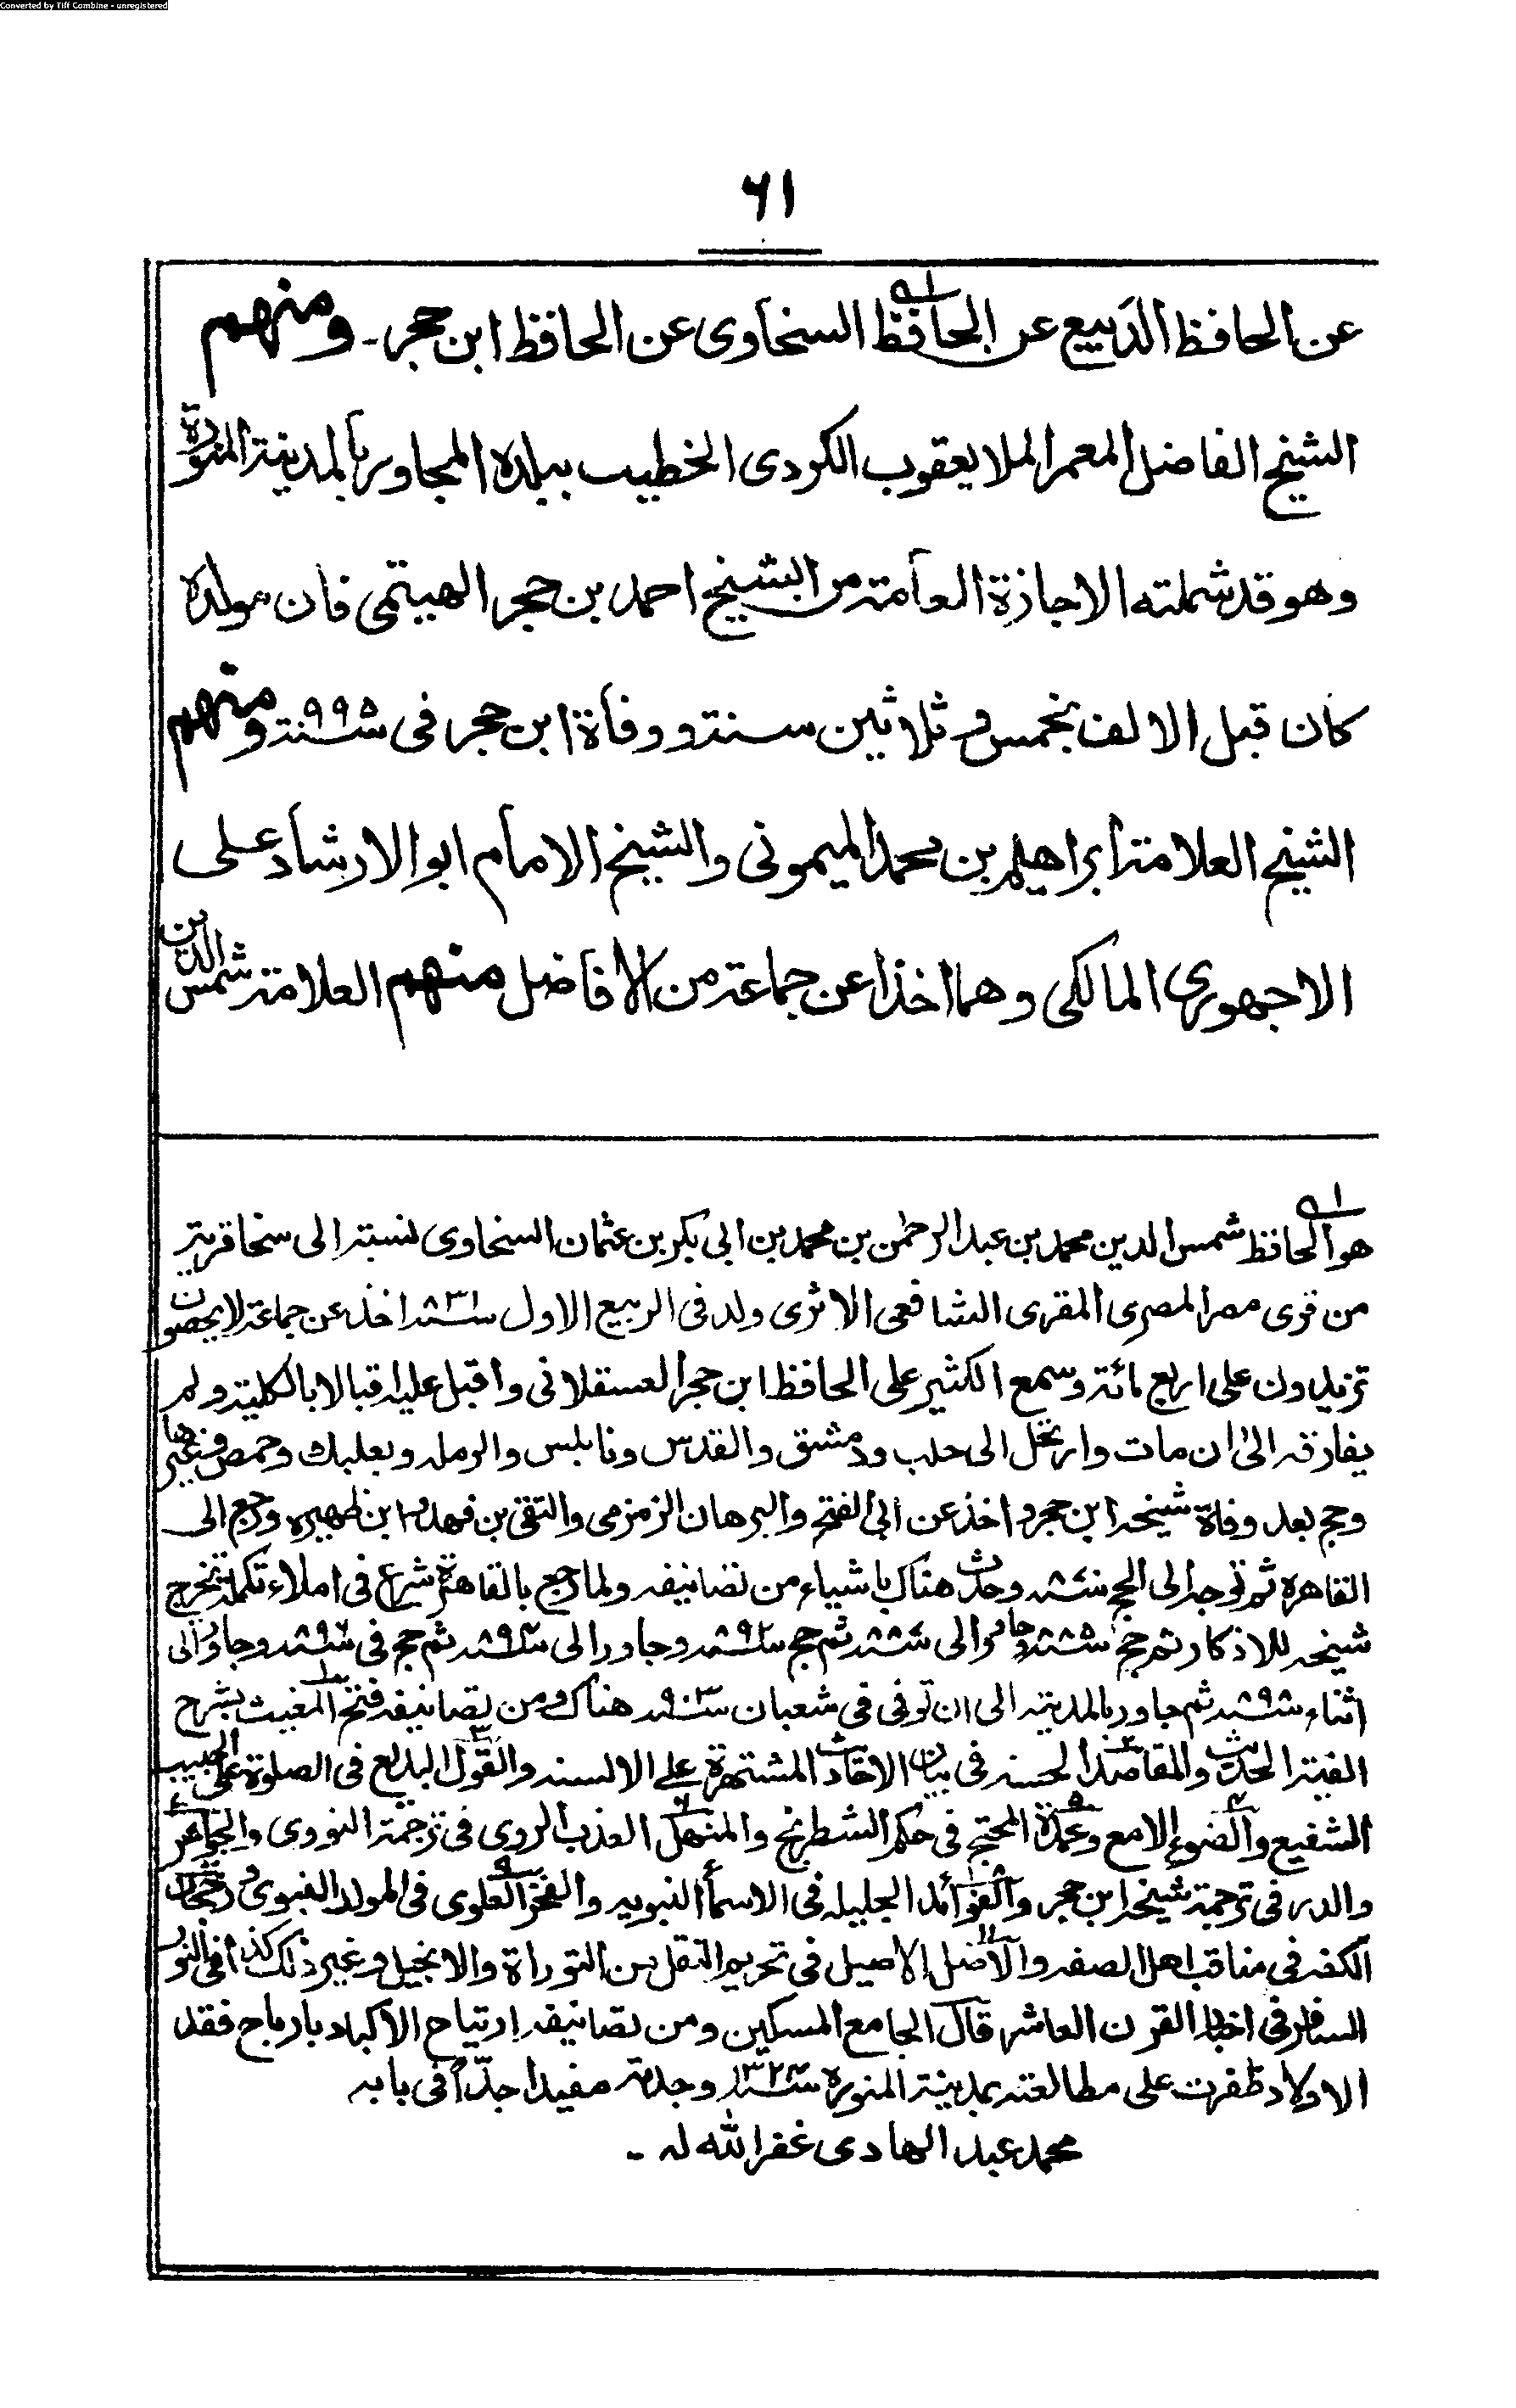 Converted by Tiff Combine - unregistered
٦١
عن الحافظ الديبع عن الحافظ السخاوى عن الحافظ ابن حجر - ومنهم
الشيخ الفاضل المعمر الملا يعقوب الكردى الخطيب ببلده المجاور بالمدينة المنورة
وهو قد شملته الاجازة العامة من الشيخ احمد بن حجر الهيتمى فان مولده
كان قبل الالف بخمس و ثلاثين سنة و وفاة ابن حجر فى سنة ٩٩٥ ومنهم
الشيخ العلامة ابراهيم بن محمد الميمونى والشيخ الامام ابو الارشاد على
الاجهورى المالكى وهما اخذا عن جماعة من الافاضل منهم العلامة شمس الدين
١ هو الحافظ شمس الدين محمد بن عبد الرحمٰن بن محمد بن ابى بكر بن عثمان السخاوى نسبة الى سخا قرية
من قرى مصر المصرى المقرى الشافعى الاثرى ولد فى الربيع الاول سنة ٨٣١ اخذ عن جماعة لا يحصون
تزيدون على اربع مائة وسمع الكثير على الحافظ ابن حجر العسقلانى واقبل عليه اقبالا بالكلية ولم
يفارقه الىٰ ان مات وارتحل الى حلب ودمشق والقدس ونابلس والرمله وبعلبك وحمص وغيرها
وحج بعد وفاة شيخه ابن حجر و اخذ عن ابى الفتح والبرهان الزمزمى والتقى بن فهد و ابن ظهيره ورجع الى
القاهرة ثم توجه الى الحج سنة وحدث هناك باشياء من تصانيفه ولما رجع بالقاهرة شرع فى املاء تكملة تخريج
شيخه للاذكار ثم حج وجاور الى ثم حج سنة ٨٩٢ وجاور الى سنة ثم حج فى سنة وجاور الى
اثناء سنة ٨٩٨ ثم جاور بالمدينه الى ان توفى فى شعبان سنة ٩٠٢ هناك ومن تصانيفه فتح المغيث بشرح
الفية الحديث والمقاصد الحسنه فى بيان الاحاديث المشتهرة على الالسنه والقول البديع فى الصلوة على الحبيب
الشفيع والضوء الامع وعمدة المحتج فى حكم الشطرنج والمنهل العذب الروى فى ترجمة النووى والجواهر
والدرر فى ترجمة شيخه ابن حجر والفوائد الجليله فى الاسماء النبويه والفخر العلوى فى المولد النبوى و رجحان
الكفه فى مناقب اهل الصفه والاصل الاصيل فى تحريم النقل من التوراة والانجيل وغير ذلك كذا فى النور
السافر فى اخبار القرن العاشر قال الجامع المسكين ومن تصانيفه ارتياح الاكباد بارباح فقد
الاولاد ظفرت على مطالعته بمدينة المنوره سنة ١٣٢٤ وجدته مفيدا جدّاً فى بابه
محمد عبد الهادى غفر الله له -